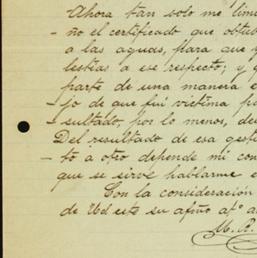 Ahora tan solo me lim
- ño el certificado que obtuv
a las aguas, para que y
lestias a ese respecto; y q
parte de una manera e
- jo de que fuí victima p
- sultado, por lo menos, de
Del resultado de esa gesti
- to a otro depende mi con
que se sirve hablarme e
Con la consideración
de Ud este su afmo at° a
M. R.